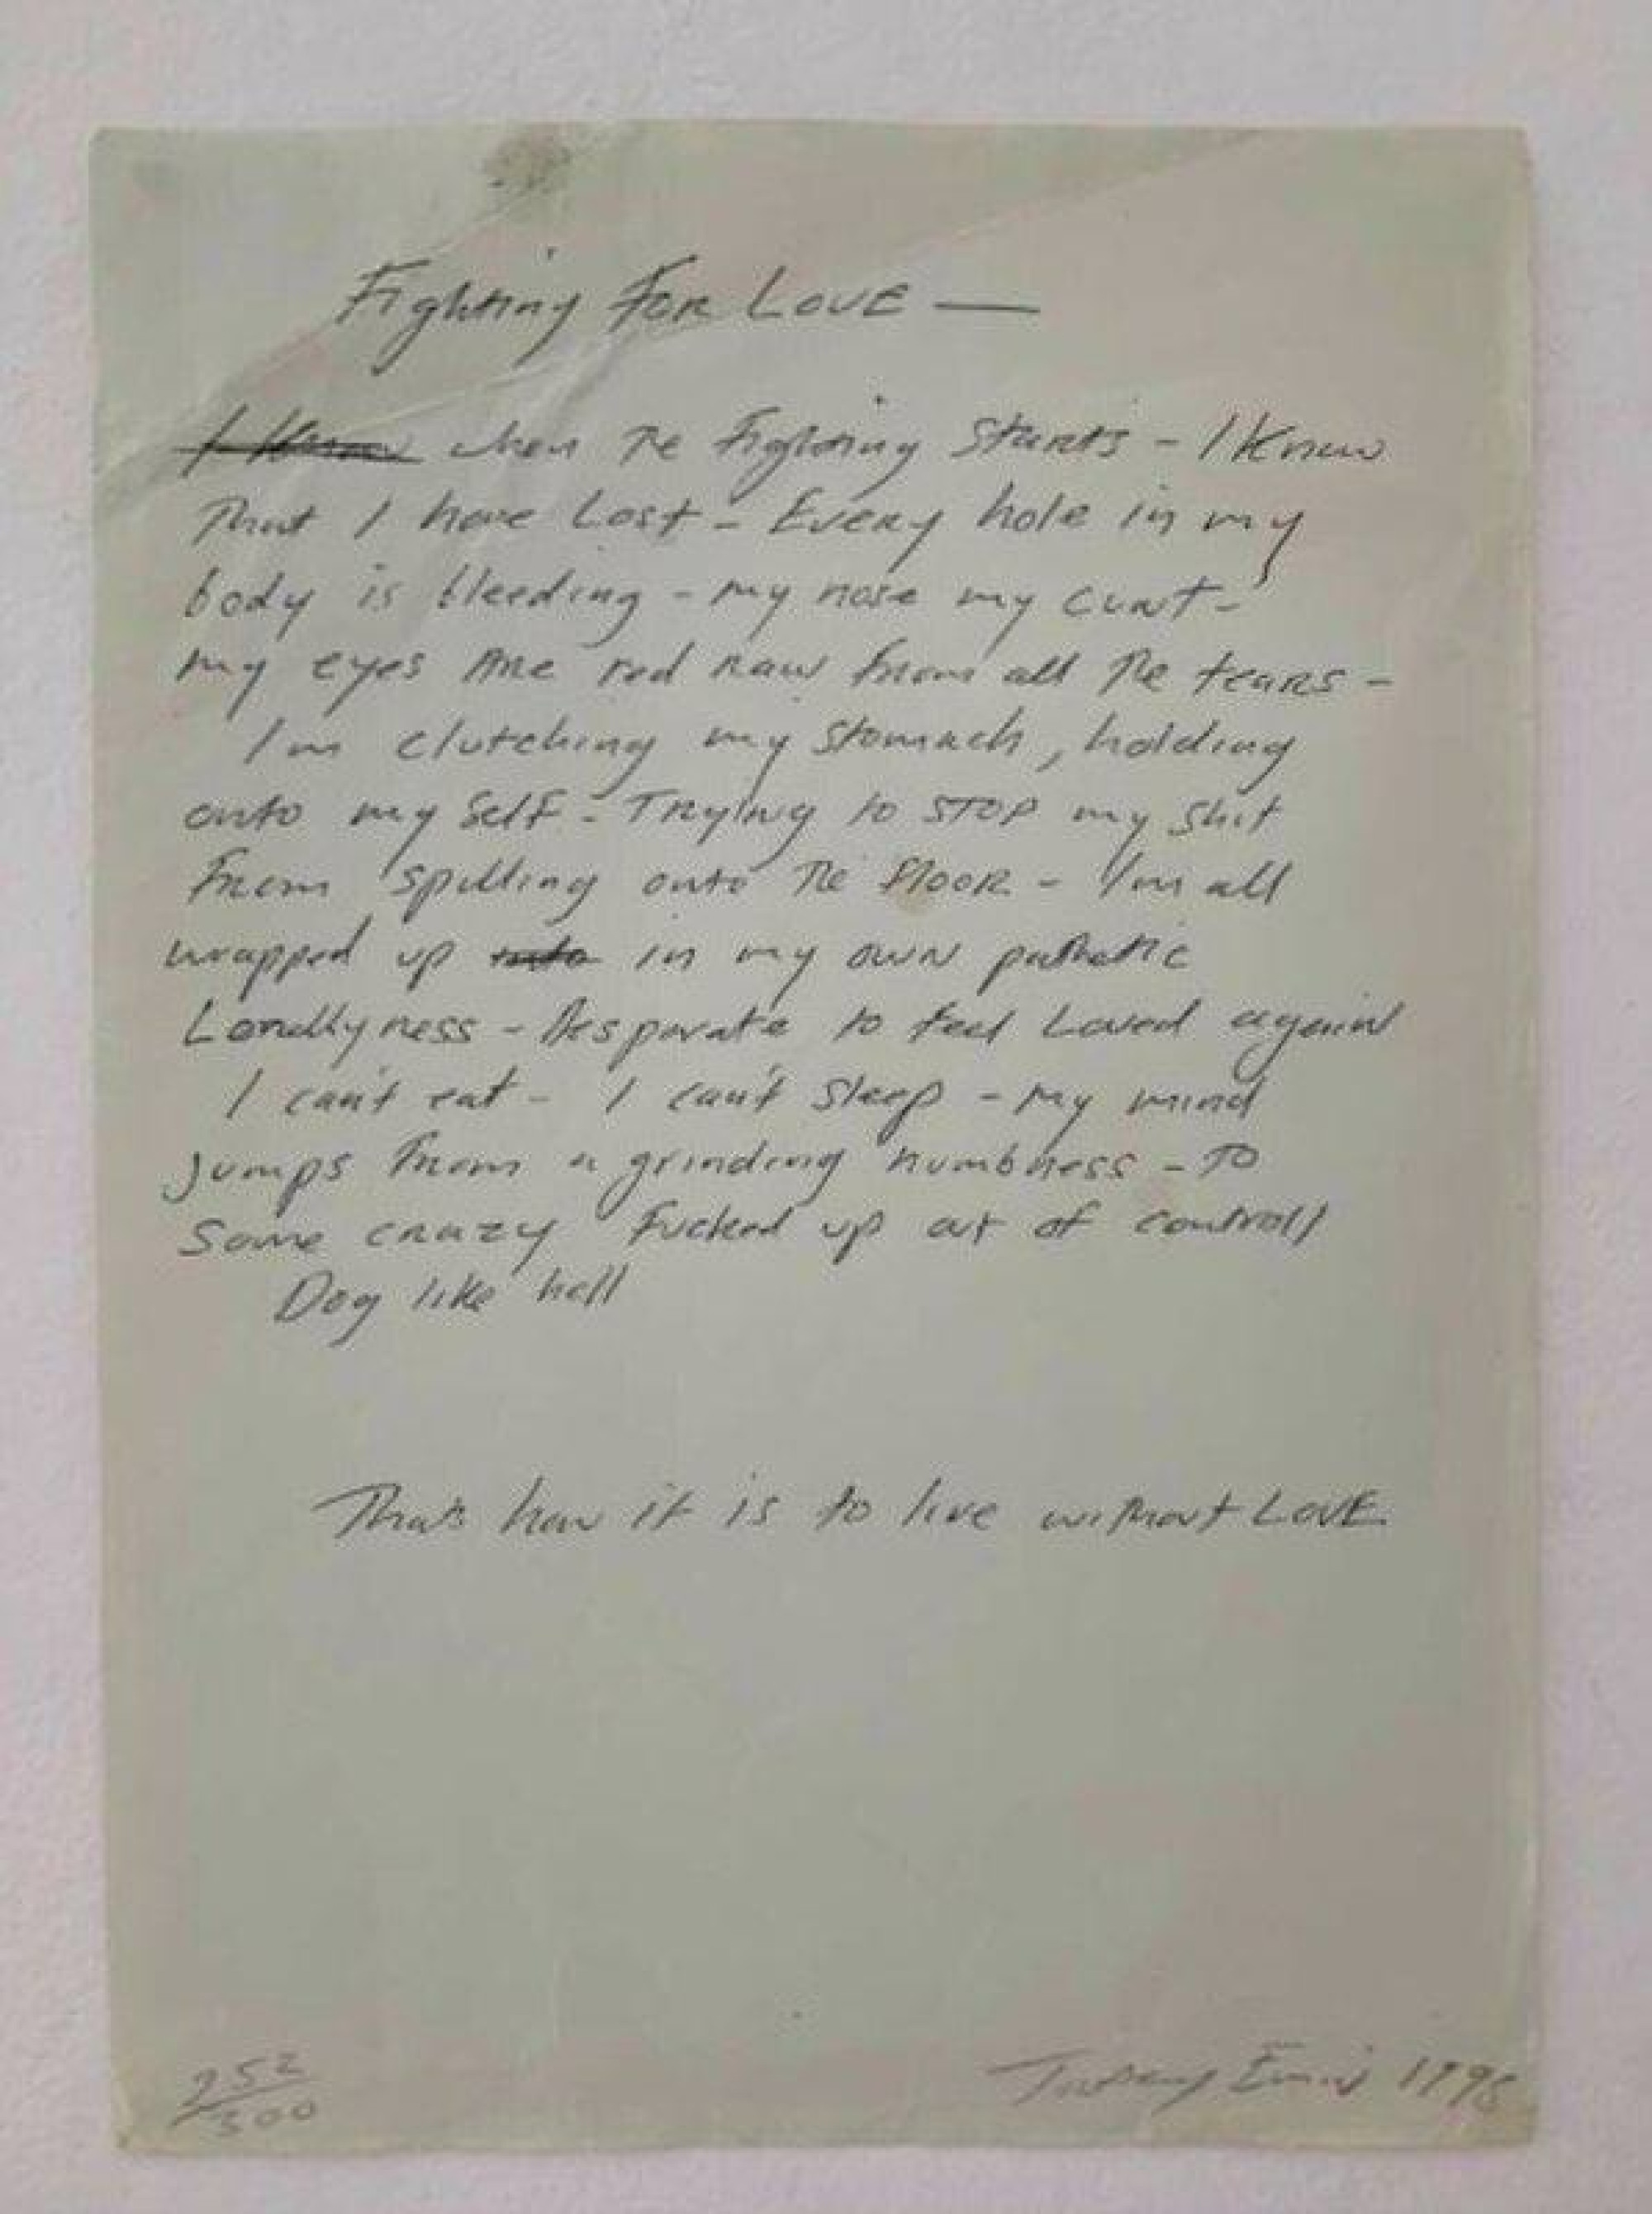 Fighting For LOVE —
I Know when The Fighting Starts - I Know
That I have Lost - Every hole in my
body is bleeding - my nose my cunt -
my eyes Are red raw from all The tears -
Im clutching my stomach, holding
onto my Self - Trying to STOP my shit
From spilling onto The floor - Im all
wrapped up into in my own pathetic
Lonellyness - Desparate to feel Loved again
I can't eat - I can't sleep - my mind
jumps from a grinding numbness - TO
some crazy Fucked up out of controll
Dog like hell
Thats how it is to live without LOVE.
252/500
Tracey Emin 1998